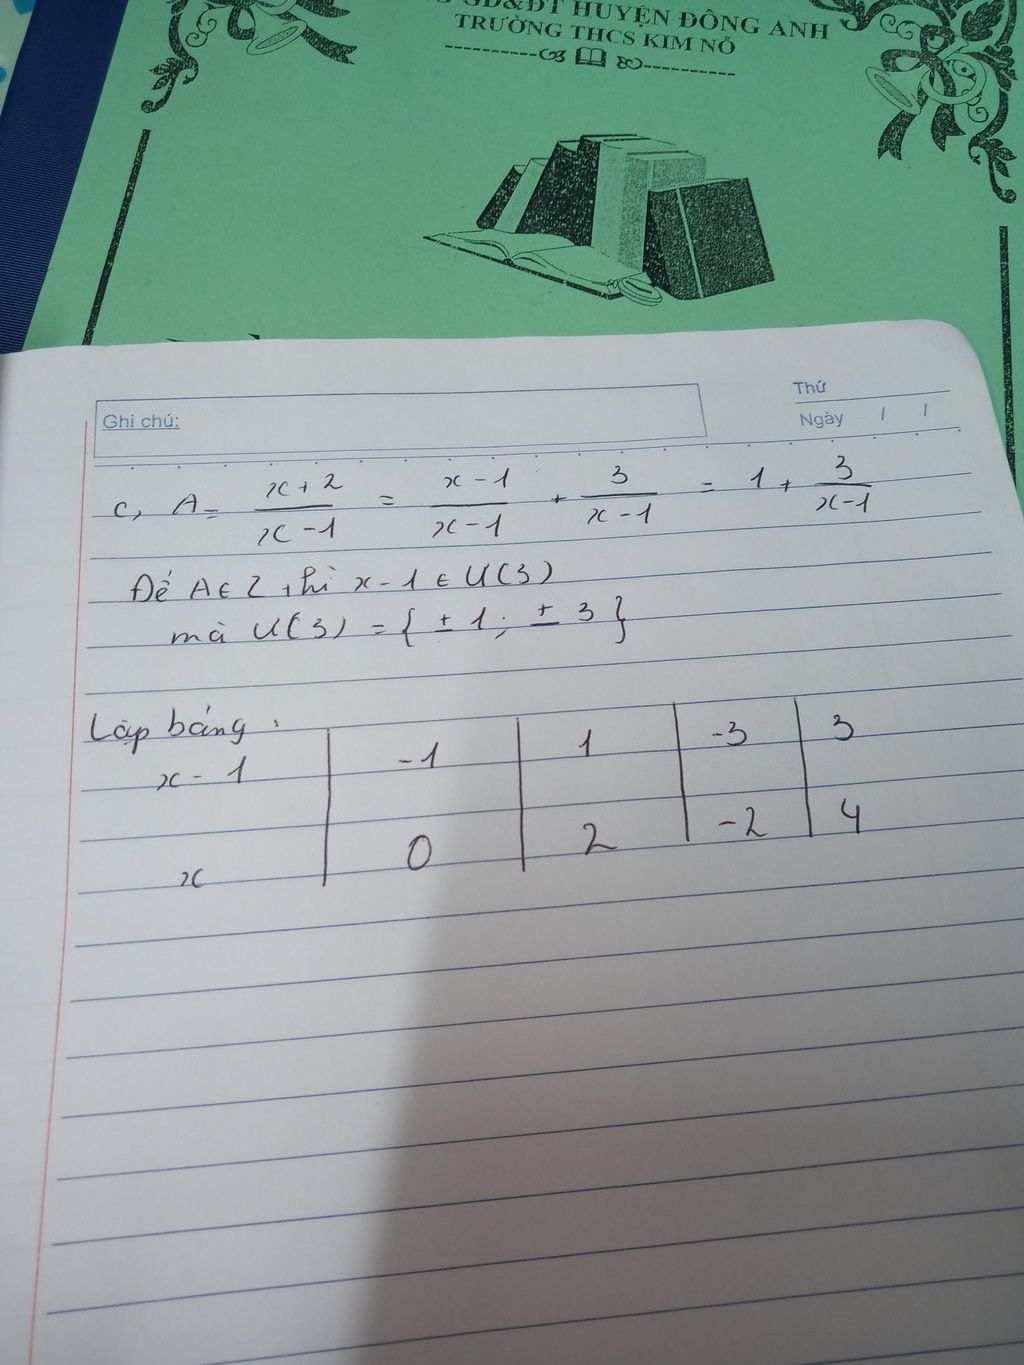 GD&ĐT HUYỆN ĐÔNG ANH
TRƯỜNG THCS KIM NỖ
Ghi chú:
Thứ
Ngày / /
c, A = (x + 2)/(x - 1) = (x - 1)/(x - 1) + 3/(x - 1) = 1 + 3/(x - 1)
Để A ∈ Z thì x - 1 ∈ Ư(3)
mà Ư(3) = { ± 1 ; ± 3 }
Lập bảng :
x - 1 -1 1 -3 3
x 0 2 -2 4